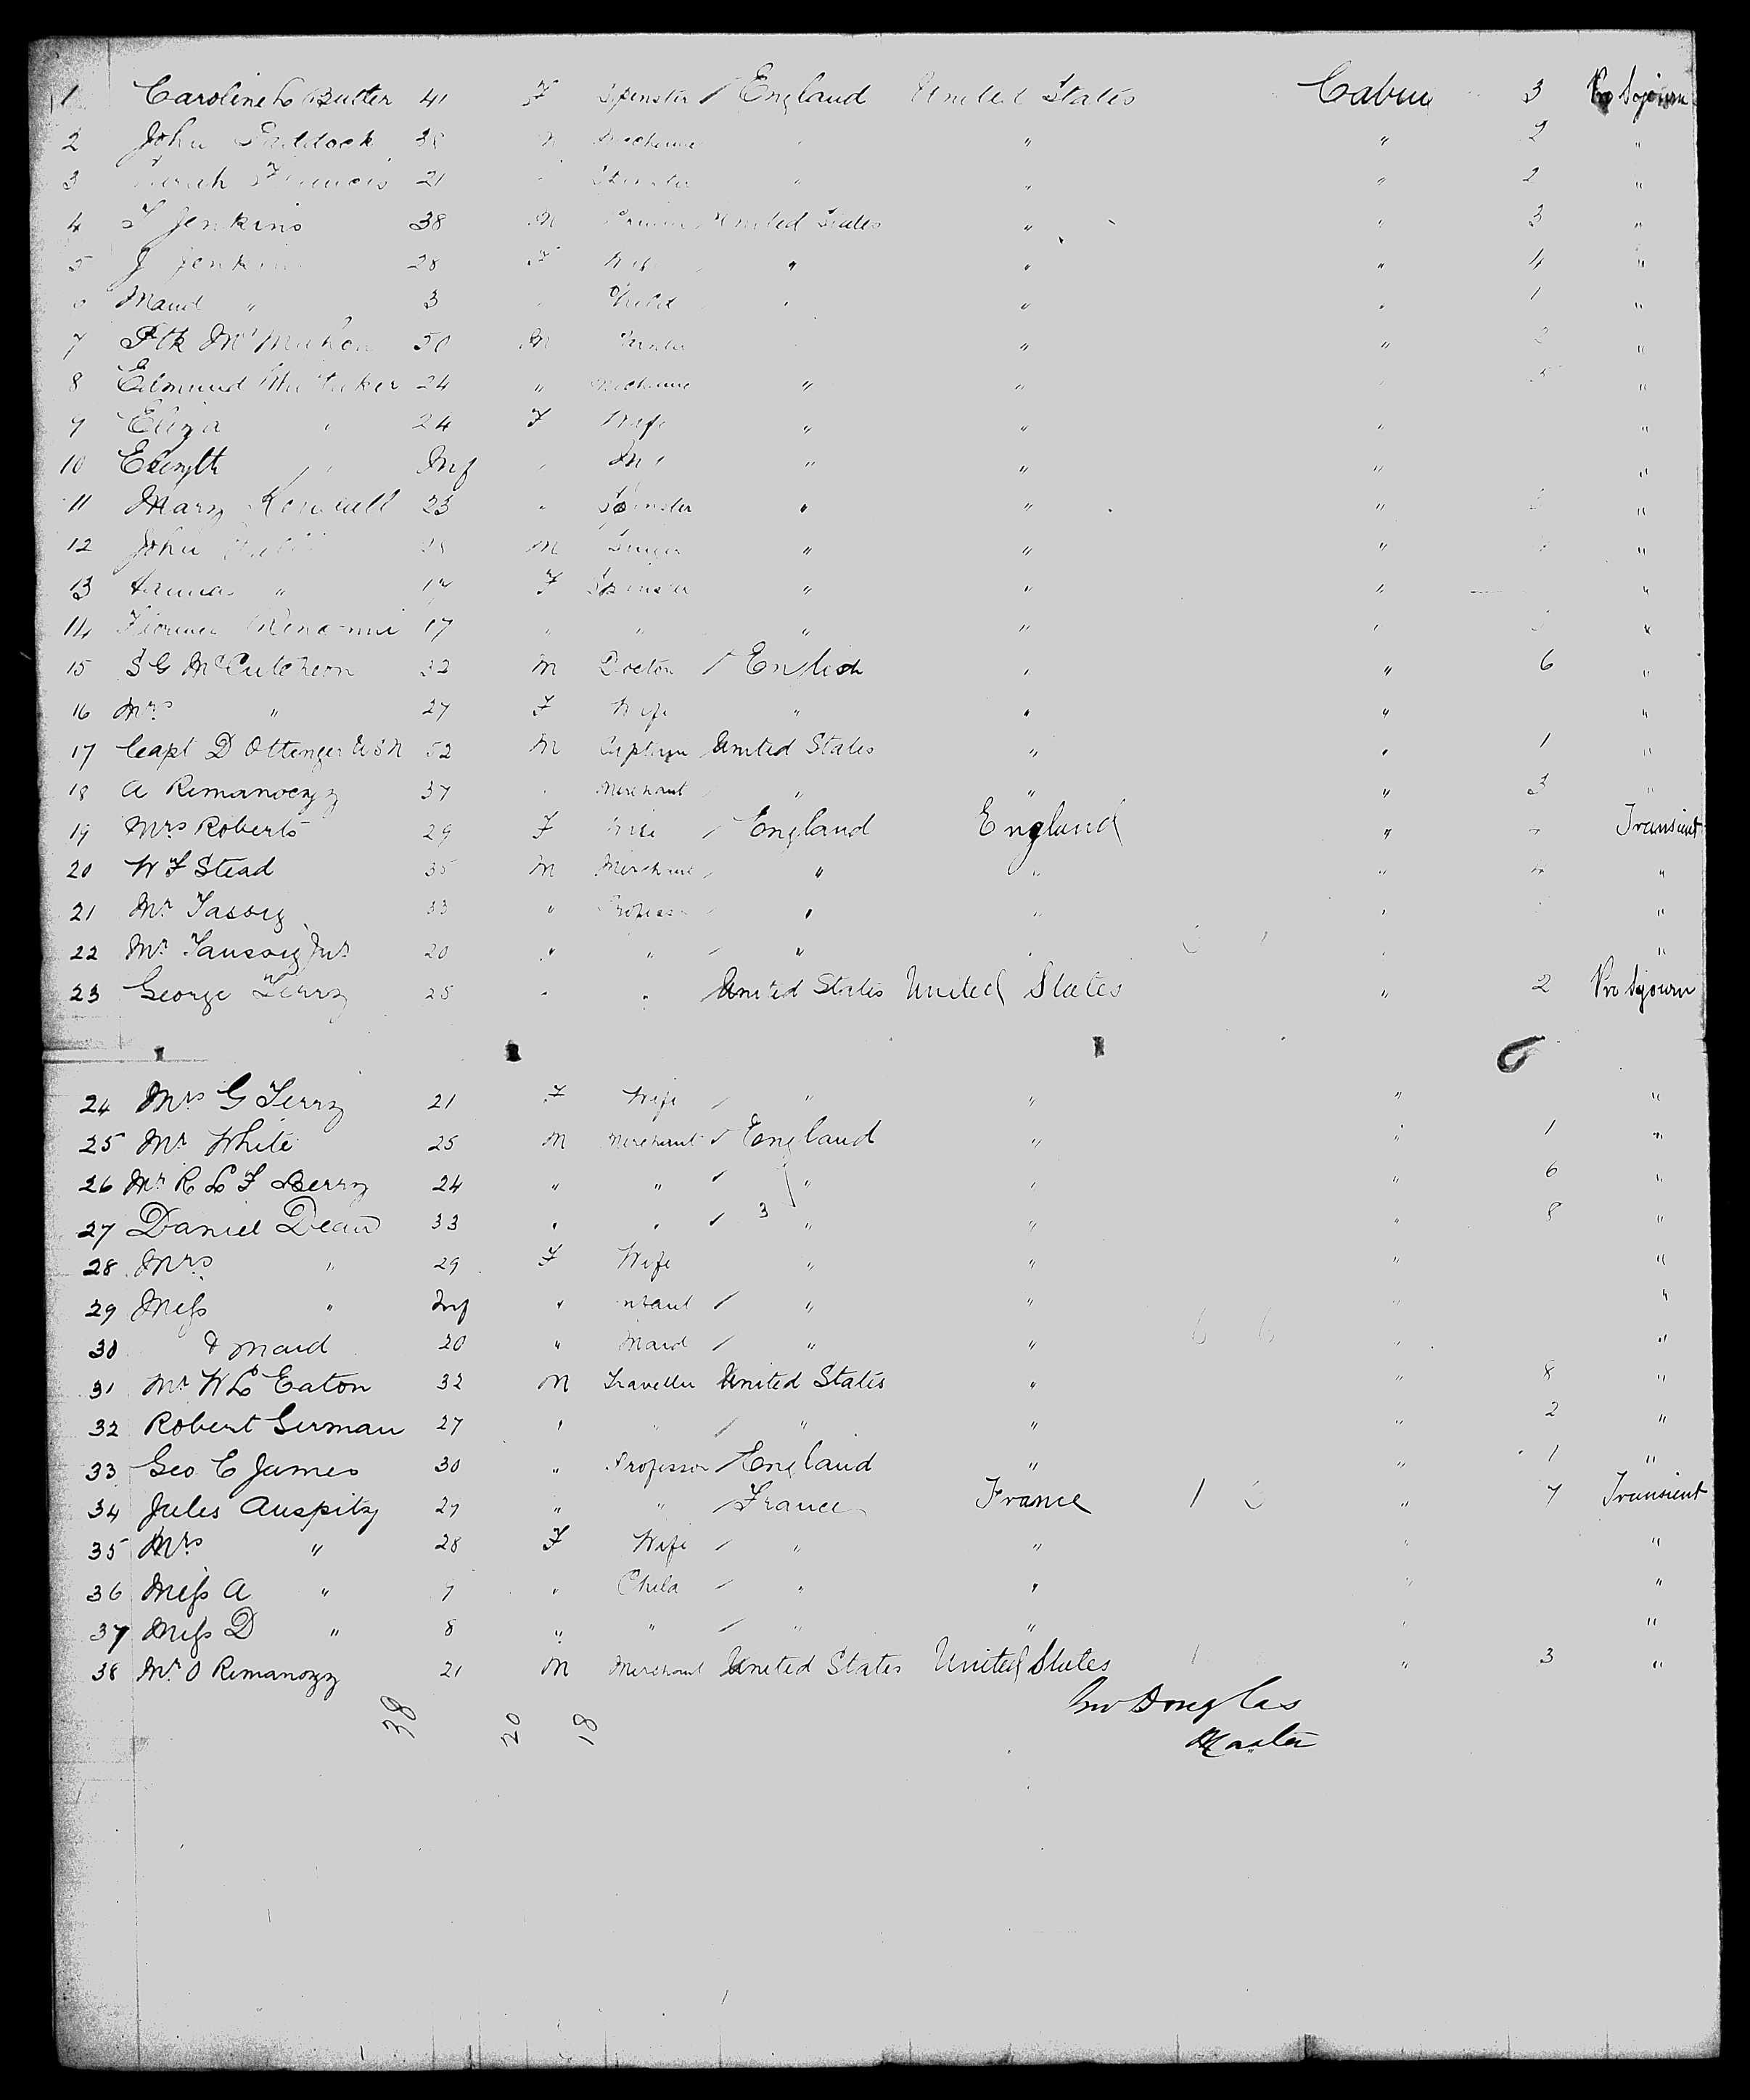 1 Caroline L Butter 41 F Spinster / England United States Cabin 3 Pro Sojourn
2 John Paddock 38 M Mechanic " " 2 "
3 Francis 21 " Spinster " " " 2 "
4 T Jenkins 38 M United States " " 3 "
5 J Jenkins 28 F Wife " " " 4 "
6 Maud " 3 " Child " " " 1 "
7 Ptk McMahon 50 M " " "
8 Edmund Whitaker 24 " Mechanic " " "
9 Eliza " 24 F Wife " " " "
10 " Inf " Inf " " " "
11 Mary Kendall 23 " Spinster " " " "
12 John M Singer " " " "
13 Hanna " F Spinster " " " "
14 Florence 17 " " " " " "
15 S G McCutcheon 32 M Doctor / English " " 6 "
16 Mrs " 27 F Wife " " " "
17 Capt D Ottinger U S N 52 M Captain United States " " 1 "
18 A Rimanoczy 37 " Merchant " " " 3 "
19 Mrs Roberts 29 F Wife / England England " " Transient
20 W F Stead 35 M Merchant / " " " 4 "
21 Mr 33 " Profess " " " "
22 Mr Taussig Jnr 20 " " / " " " "
23 George Terry 25 " " United States United States " 2 Pro Sojourn
24 Mrs G Terry 21 F Wife / " " " "
25 Mr White 25 M Merchant / England " " 1 "
26 Mr R L F Berry 24 " " / " " " 6 "
27 Daniel Dean 33 " " / 3 " " " 8 "
28 Mrs " 29 F Wife " " " "
29 Miss " Inf " Infant / " " " "
30 & maid 20 " Maid / " " 6 6 " "
31 Mr W L Eaton 32 M Traveller United States " " 8 "
32 Robert German 27 " " / " " " 2 "
33 Geo E James 30 " Professor / England " " 1 "
34 Jules Auspitz 27 " " / France France 1 " 7 Transient
35 Mrs " 28 F Wife / " " " "
36 Miss A " 9 " Child / " " " "
37 Miss D " 8 " " / " " " "
38 Mr O Rimanoczy 21 M Merchant United States United States 1 " 3 "
38 20 18
Douglas
Master